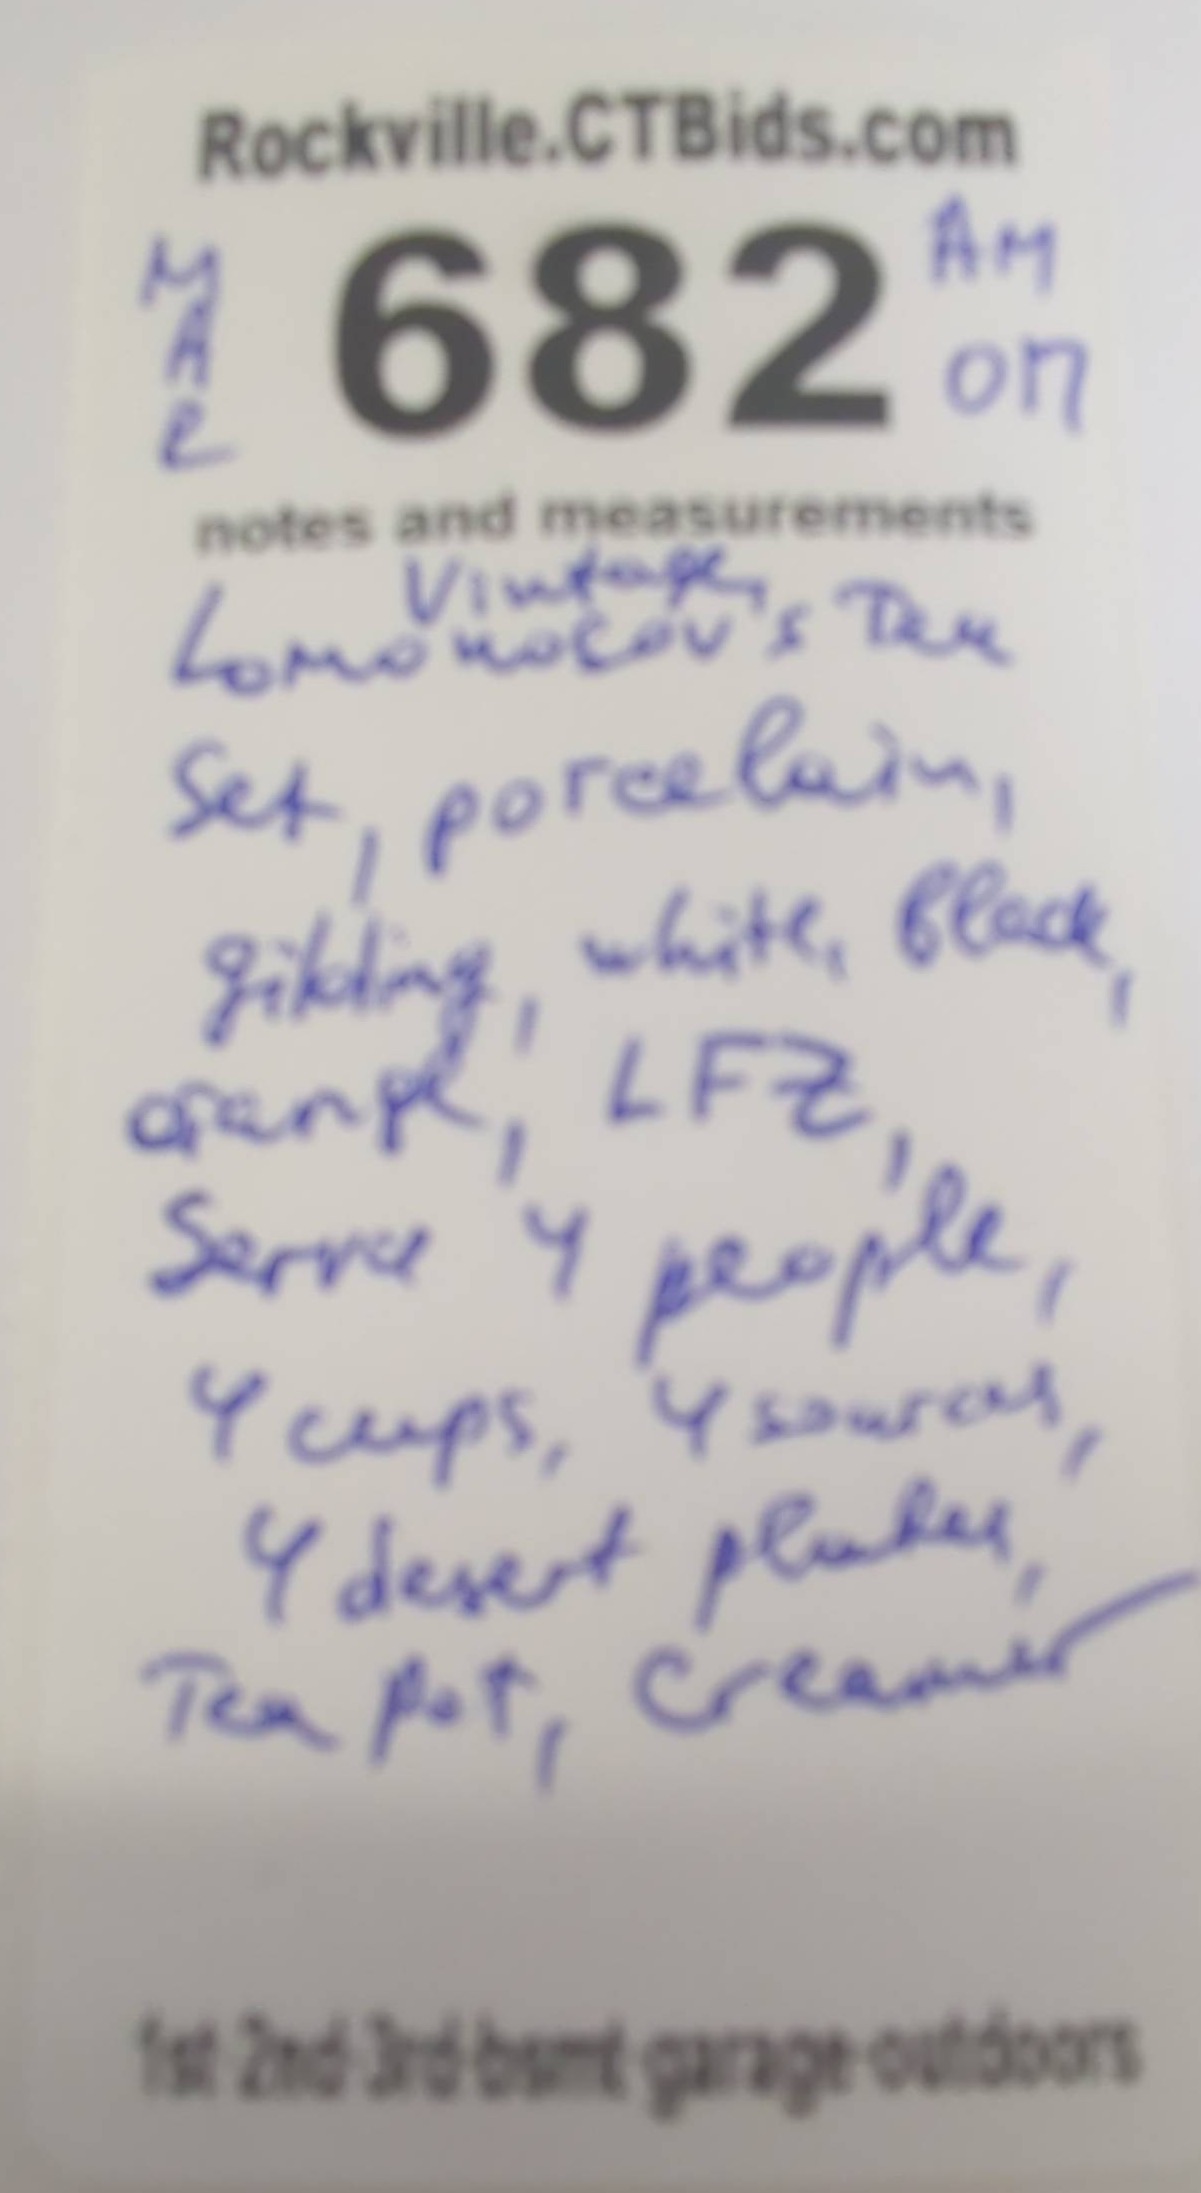 Rockville.CTBids.com
MAE 682 AM
on
notes and measurements
Vintage,
Lomonosov's Tea
Set, porcelain,
gilding, white, Black,
orange, LFZ,
Service 4 people,
4 cups, 4 sources,
4 desert plates,
Tea pot, Creamer
1st 2nd 3rd bsmt garage outdoors